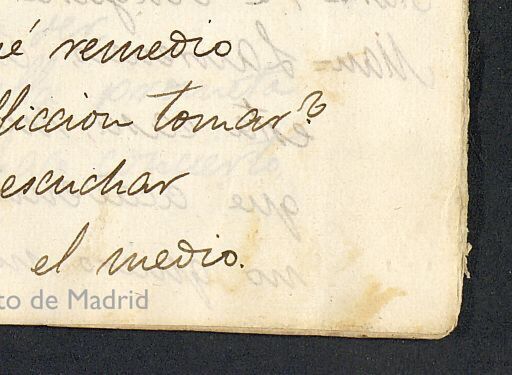 é remedio
fliccion tomar?
escuchar
el medio.
to de Madrid